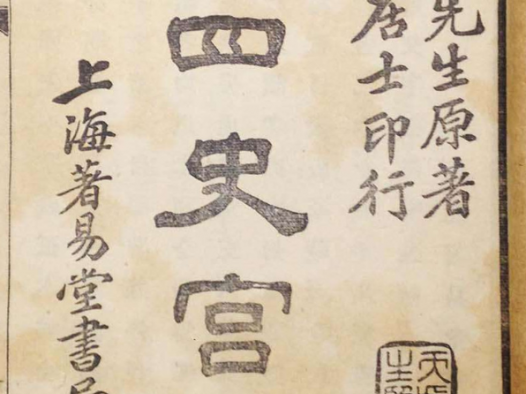 先生原著
居士印行
四史宫
上海著易堂書局